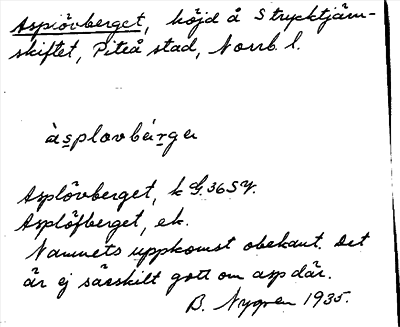 Asplövberget, höjd å Strycktjärn-
skiftet, Piteå stad, Norrb. l.
àsplovbärge
Asplövberget, k
Asplöfberget, ek.
Namnets uppkomst obekant. Det
är ej särskilt gott om asp där.
B. Nygren 1935.